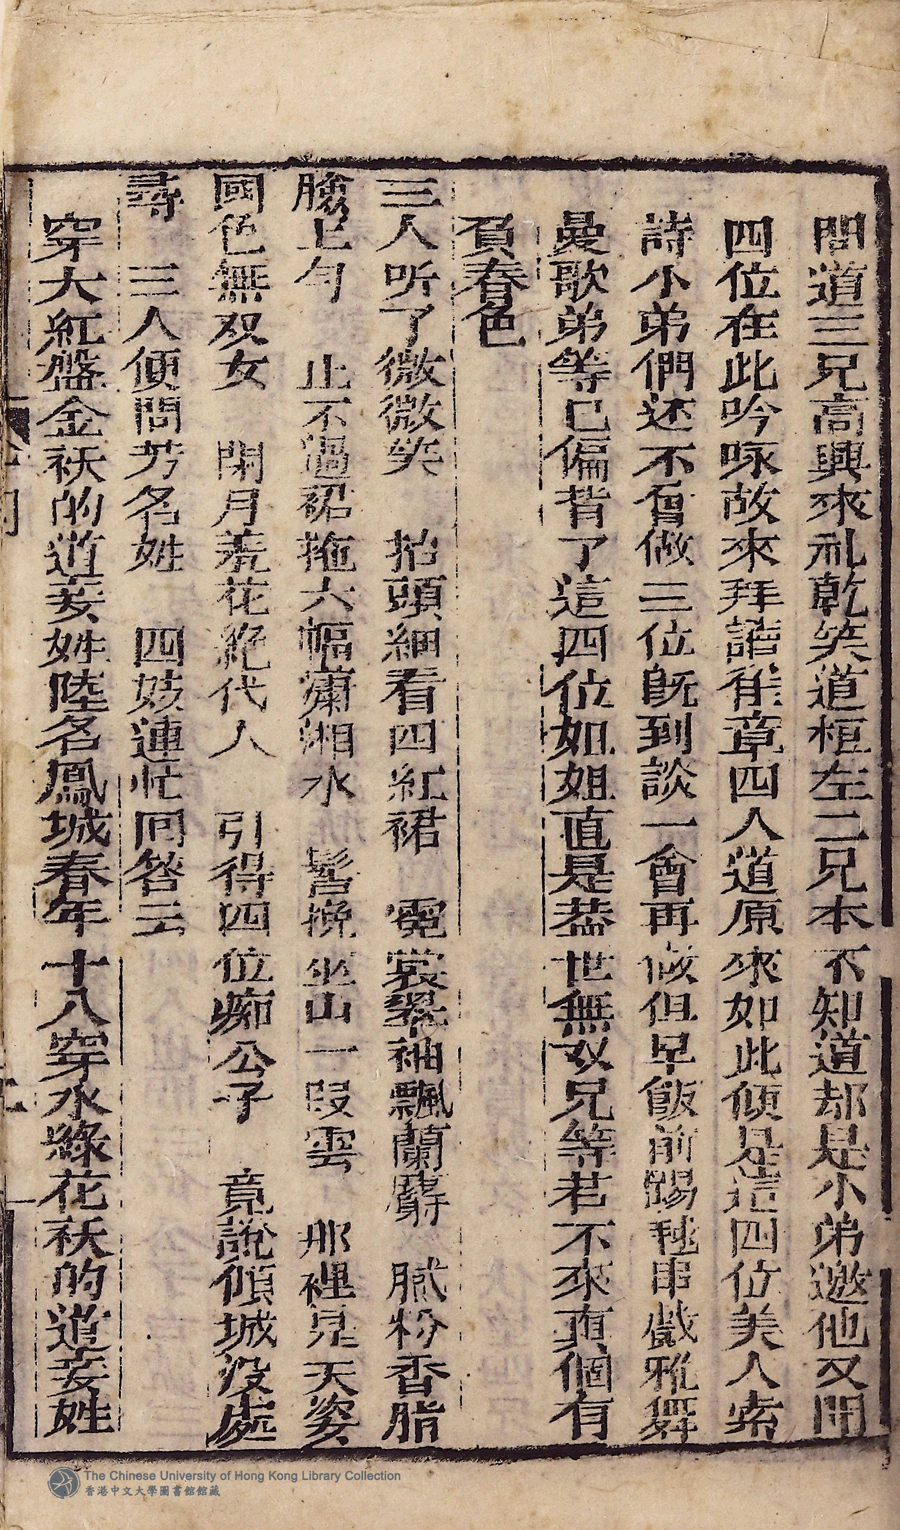 問道三兄高興來礼乾笑道桓左二兄本不知道却是小弟邀他又聞
四位在此吟咏故來拜諸佳章四人道原來如此便是這四位美人索
詩小弟們还不曾做三位既到談一會再做但早飯前踢毬串戲雅舞
曼歌弟等已偏背了這四位如姐直是蓋世無双兄等若不來真個有
負春色
三人听了微微笑 抬頭細看四紅裙 霓裳翠袖飄蘭麝 膩粉香脂
臉上勻 止不過裙拖六幅瀟湘水 髻挽巫山一段雲 那裡見天姿
國色無双女 閉月羞花絕代人 引得四位痴公子 竟說傾城沒處
尋 三人便問芳名姓 四妓連忙回答云
穿大紅盤金袄的道妾姓陸名鳳城春年十八穿水綠花袄的道妾姓
The Chinese University of Hong Kong Library Collection
香港中文大學圖書館館藏